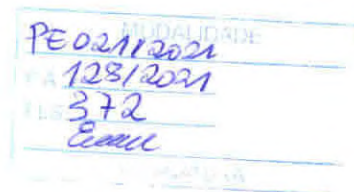 MODALIDADE
PE 021/2021
P.A 128/2021
FLS 372